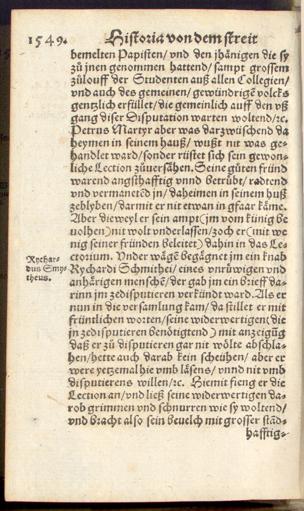 1549. Historia von dem streit
bemelten Papisten/ vnd den jhänigen die sy
zů jnen genommen hattend/ sampt grossem
zůlouff der Studenten auß allen Collegien/
vnd auch des gemeinen/ gewündrige volcks
gentzlich erfüllet/ die gemeinlich auff den vß
gang diser Disputation warten woltend/ ꝛc.
Petrus Martyr aber was darzwüschend da
heymen in seinem hauß/ wußt nit was ge-
handlet ward/ sonder rüstet sich sein gewon-
liche Lection zůversähen. Seine gůten fründ
warend angsthafftig vnnd betrübt/ radtend
vnd vermanetẽd jn/ daheimen in seinem huß
zeblyben/ darmit er nit etwan in gfaar käme.
Aber dieweyl er sein ampt (jm vom künig be
uolhen) nit wolt vnderlassen/ zoch er (mit we
nig seiner fründen beleitet) dahin in das Le-
ctorium. Vnder wägẽ begägnet jm ein knab
Rychar-
dus Smy-
theus.
Rychardi Schmithei/ eines vnrüwigen vnd
anhärigen menschẽ/ der gab jm ein brieff da-
rinn jm zedisputieren verkündt ward. Als er
nun in die versamlung kam/ da stillet er mit
früntlichen worten/ seine widerwertigen (die
jn zedisputieren benötigtend) mit anzeigũg
daß er zů disputieren gar nit wölte abschla-
hen/ hette auch darab kein scheühen/ aber er
were yetzemal hie vmb läsens/ vnnd nit vmb
disputierens willen/ ꝛc. Hiemit fieng er die
Lection an/ vnd ließ seine widerwertigen da-
rob grimmen vnd schnurren wie sy woltend/
vnd bracht also sein beuelch mit grosser ständ-
hafftig-